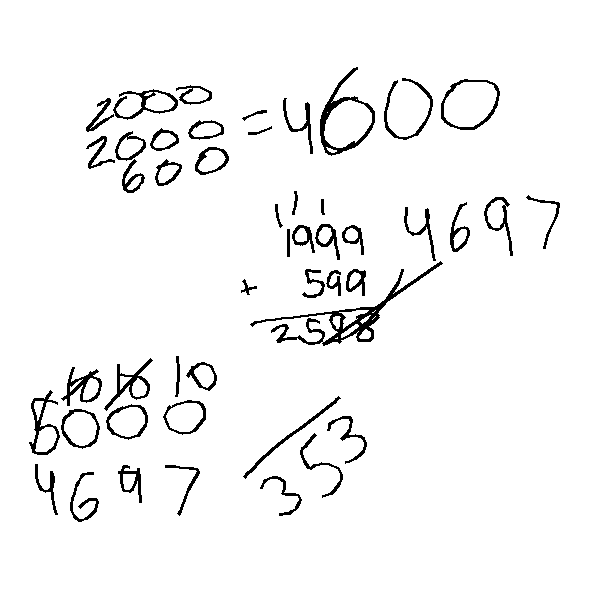 2000
2000 = 4600
600
1999 4697
+ 599
2598
10 10 10
5000
4697
353